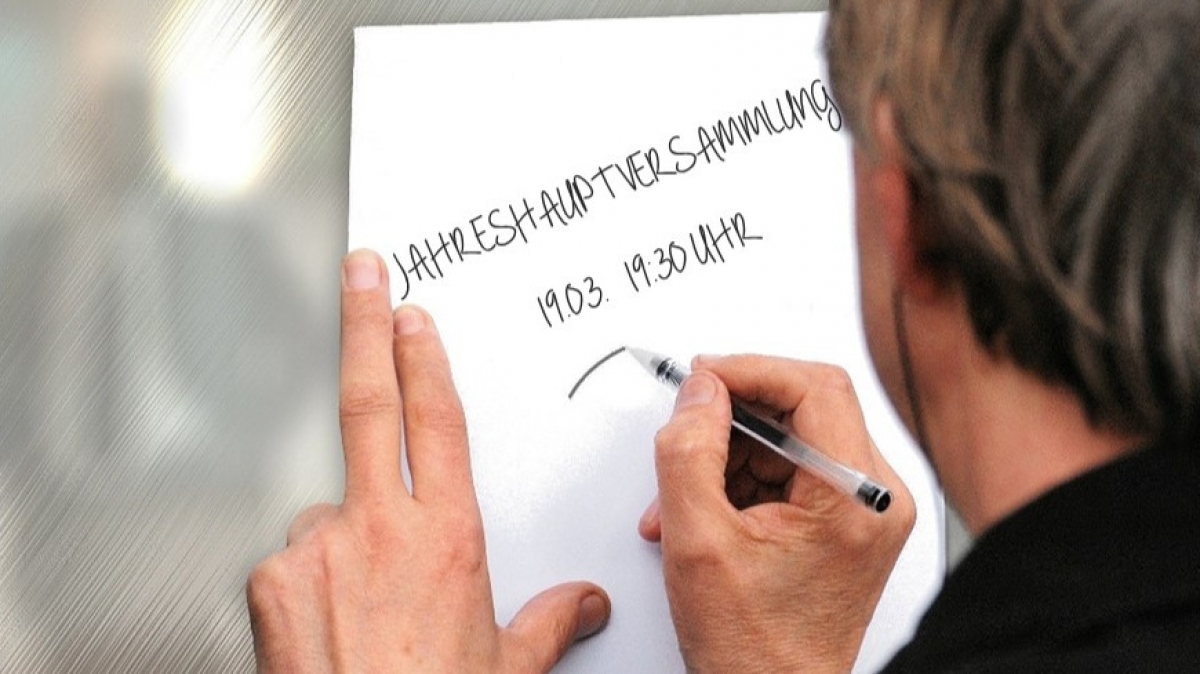 JAHRESHAUPTVERSAMMLUNG
19.03. 19:30 UHR